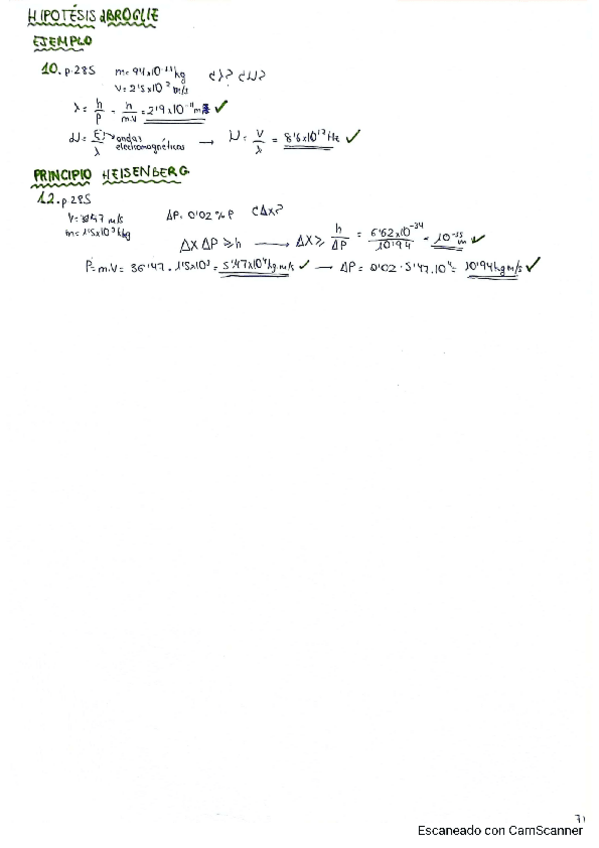 HIPOTÉSIS dBROGLIE
EJEMPLO
10. p.285 m= 9'4x10⁻³¹ kg ¿λ? ¿ν?
V= 2'5x10⁷ m/s
λ = h/P = h/m.V = 2'9x10⁻¹¹ m ✓
ν = c/λ → ondas electromagnéticas → ν = V/λ = 8'6x10¹⁷ Hz ✓
PRINCIPIO HEISENBERG
12. p.285
V= 36'47 m/s ΔP= 0'02% P ¿Δx?
m= 1'5x10³ kg
Δx ΔP ≥ h → Δx ≥ h/ΔP = 6'62x10⁻³⁴/10'94 = 10⁻³⁵ m ✓
P= m.V= 36'47 . 1'5x10³ = 5'47x10⁴ kg m/s ✓ → ΔP = 0'02 · 5'47.10⁴ = 10'94 kg m/s ✓
71
Escaneado con CamScanner